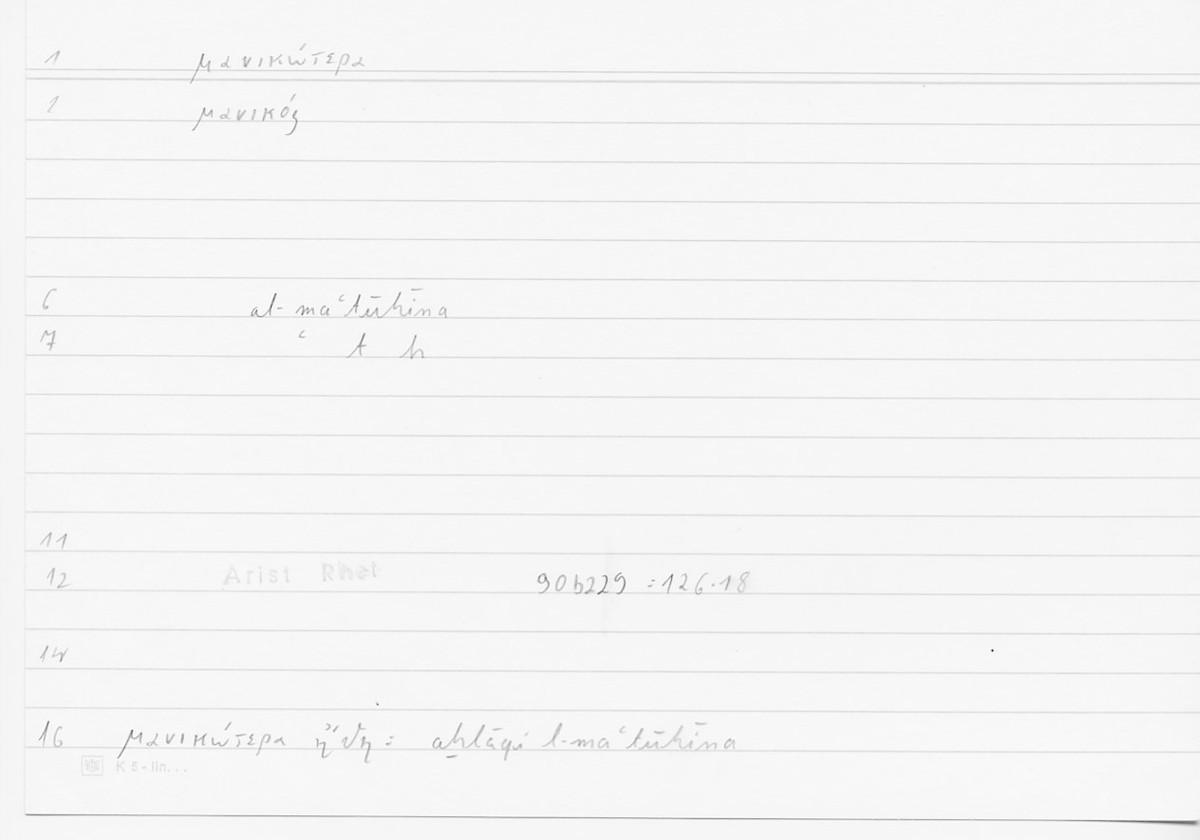 1 μανικώτερα
2 μανικός
6 al-maʿtūhīna
7 ʿ t h
11
12 Arist Rhet 90b29 :126.18
14
16 μανικώτερα ἤθη: aḫlāqi l-maʿtūhīna
K 5 - lin...